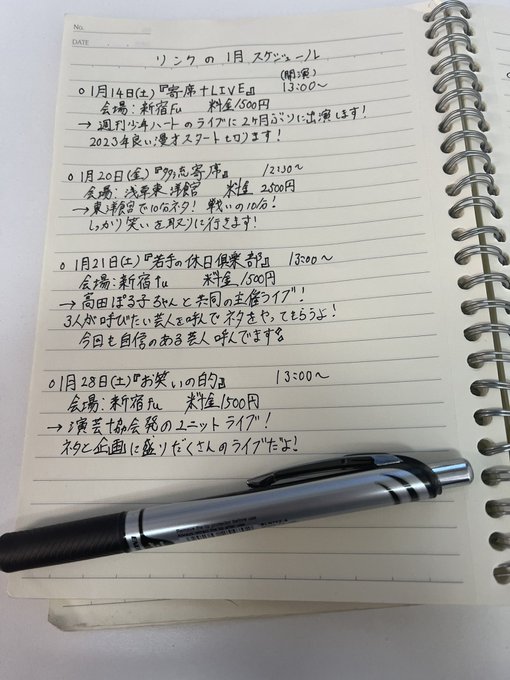 No.
DATE
リンクの1月スケジュール
(開演)
○1月14日(土)『寄席+LIVE』 13:00〜
会場:新宿Fu 料金1500円
→週刊少年ハートのライブに2ヶ月ぶりに出演します!
2023年良い漫才スタート切ります!
○1月20日(金)『多流寄席』 12:30〜
会場:浅草東洋館 料金2500円
→東洋館で10分ネタ!戦いの10分!
しっかり笑いを取りに行きます!
○1月21日(土)『若手の休日倶楽部』 13:00〜
会場:新宿Fu 料金1500円
→高田ぽる子ちゃんと共同の主催ライブ!
3人が呼びたい芸人を呼んでネタをやってもらうよ!
今回も自信のある芸人呼んでます
○1月28日(土)『お笑いの的』 13:00〜
会場:新宿Fu 料金1500円
→演芸協会発のユニットライブ!
ネタと企画に盛りだくさんのライブだよ!